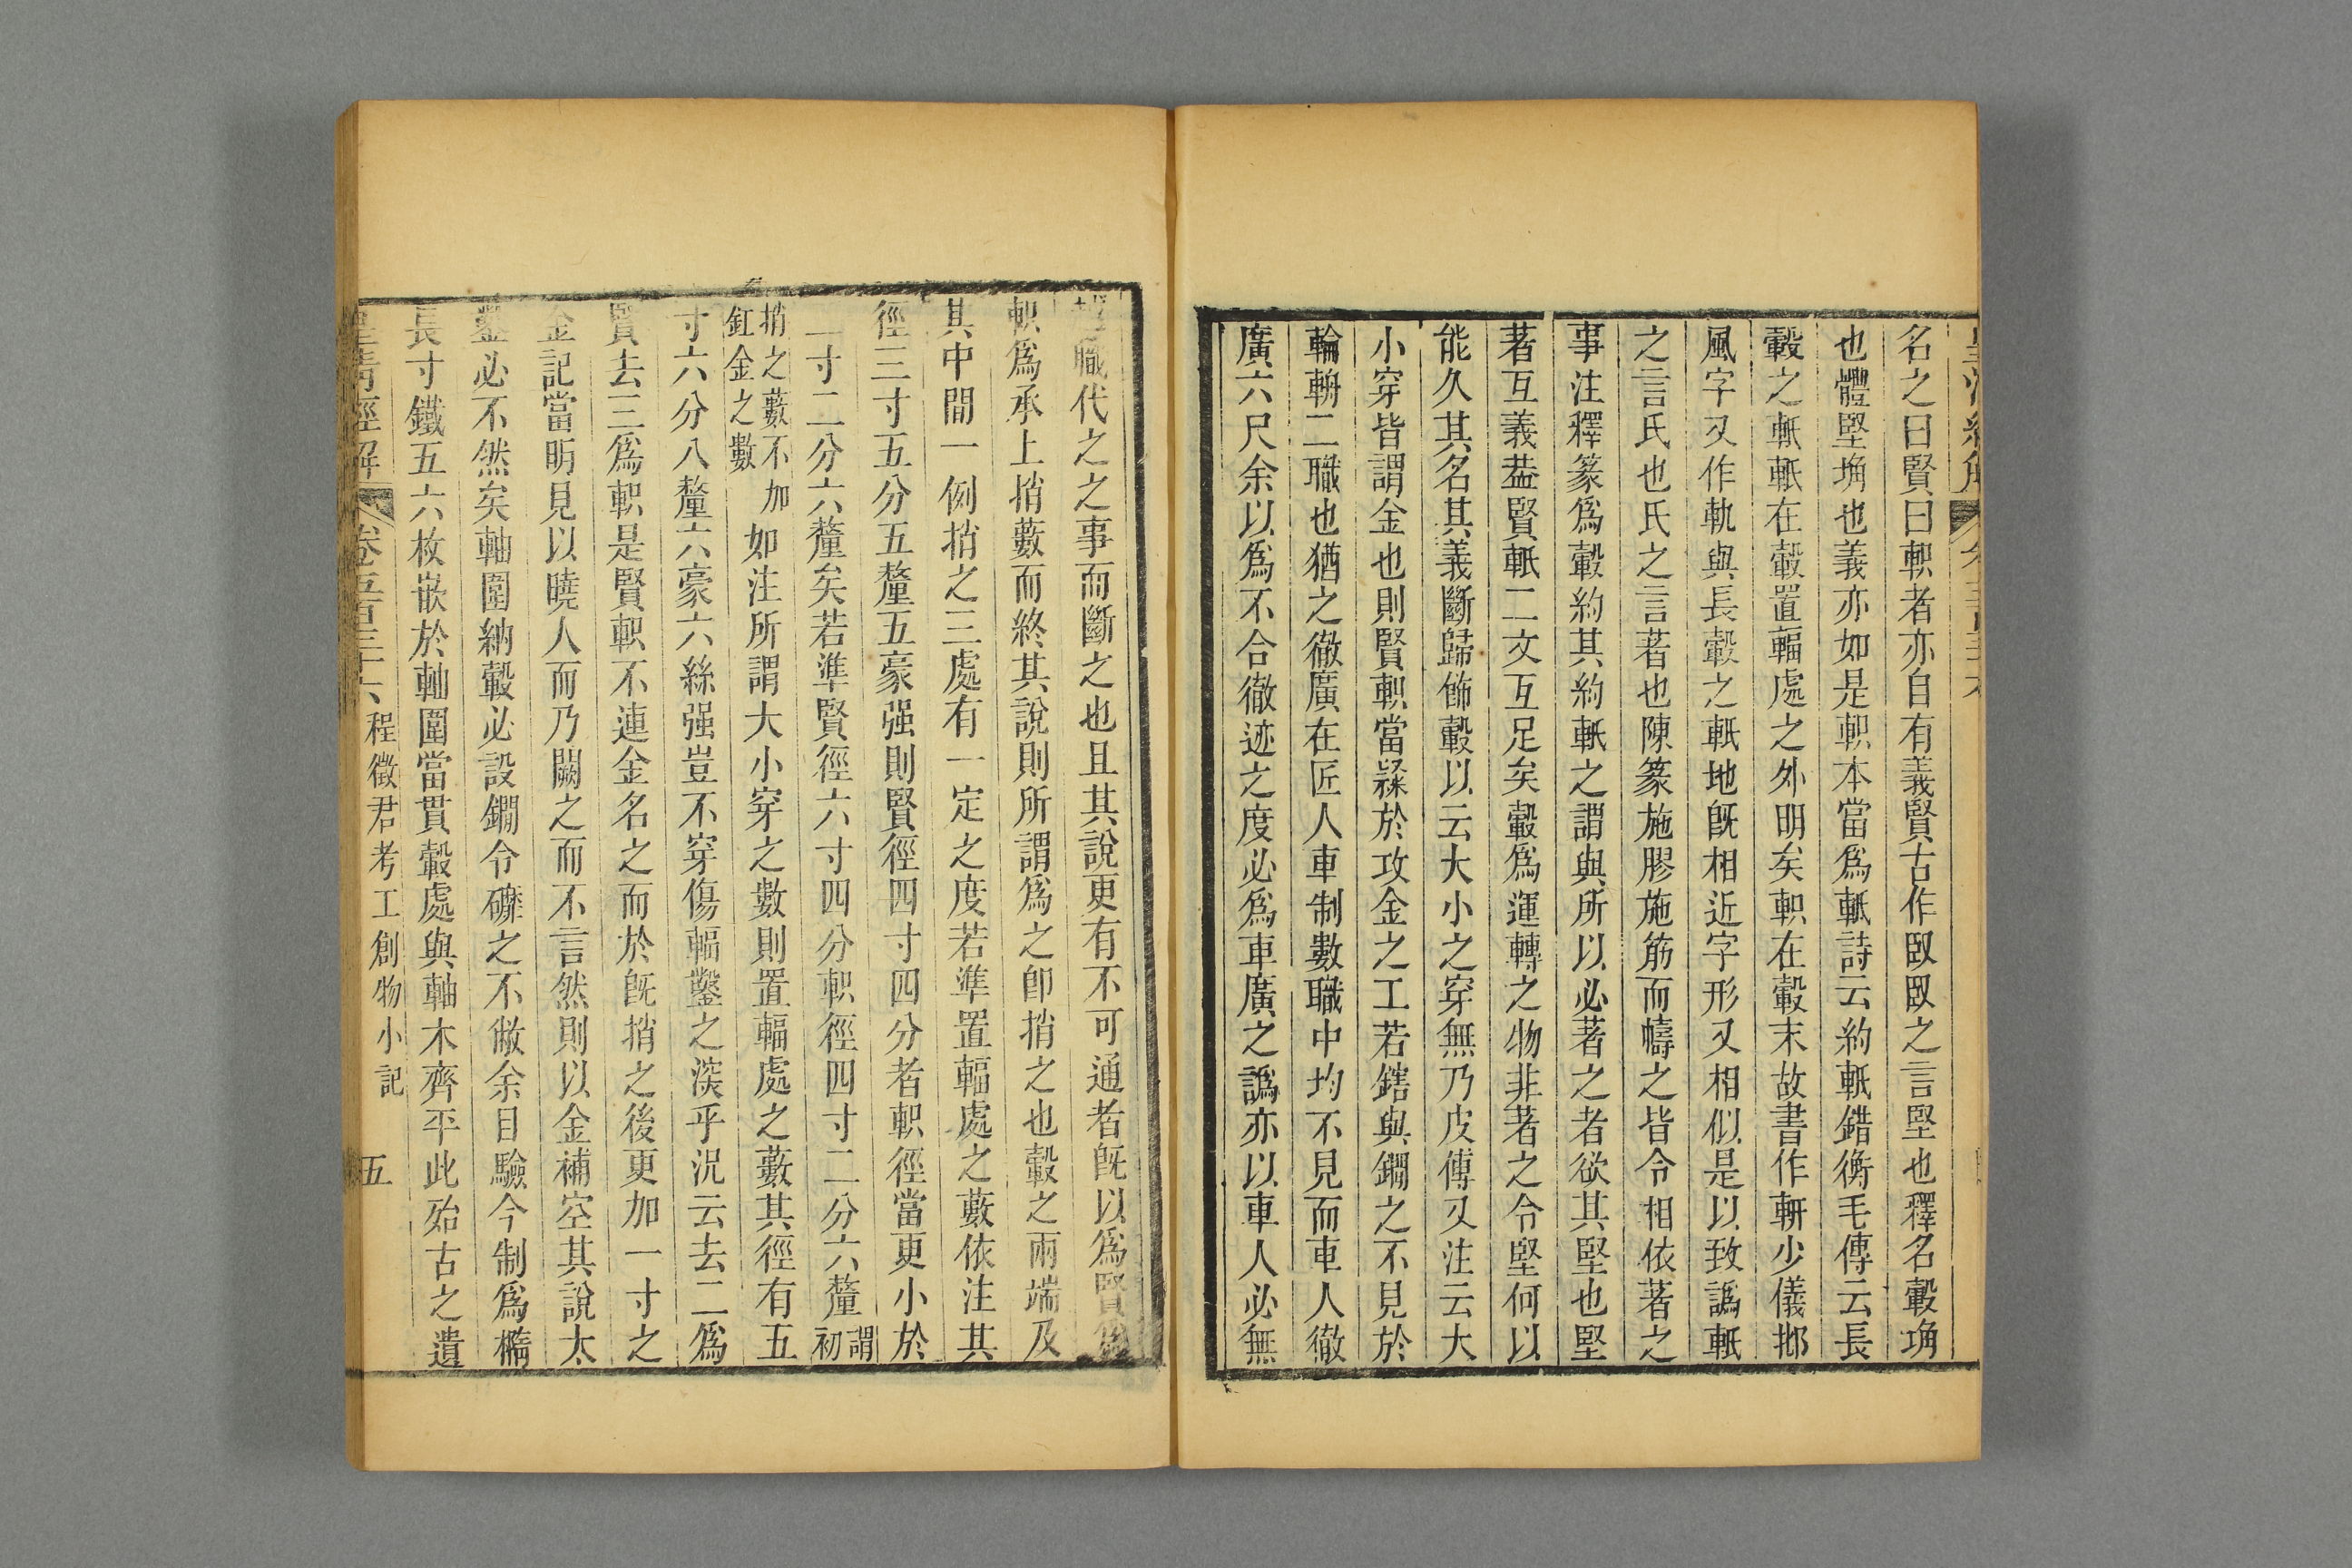 名之曰賢曰軹者亦自有義賢古作臤臤之言堅也釋名轂埆
也體堅埆也義亦如是軹本當爲軝詩云約軝錯衡毛傳云長
轂之軝軝在轂置輻處之外明矣軹在轂末故書作軒少儀
風字又作軌與長轂之軝地旣相近字形又相似是以致譌軝
之言氏也氏之言著也陳篆施膠施筋而幬之皆令相依著之
事注釋篆爲轂約其約軝之謂與所以必著之者欲其堅也堅
著互義葢賢軝二文互足矣轂爲運轉之物非著之令堅何以
能久其名其義斷歸飾轂以云大小之穿無乃皮傅又注云大
小穿皆謂金也則賢軹當繇於攻金之工若鎋與鐧之不見於
輪輈二職也猶之徹廣在匠人車制數職中均不見而車人徹
廣六尺余以爲不合徹迹之度必爲車廣之譌亦以車人必無
職代之之事而斷之也且其說更有不可通者旣以爲賢爲
軹爲承上捎藪而終其說則所謂爲之卽捎之也轂之兩端及
其中間一例捎之三處有一定之度若準置輻處之藪依注其
徑三寸五分五釐五豪强則賢徑四寸四分者軹徑當更小於
二寸二分六釐矣若準賢徑六寸四分軹徑四寸二分六釐謂初
捎之藪不加釭金之數如注所謂大小穿之數則置輻處之藪其徑有五
寸六分八釐六豪六絲强豈不穿傷輻鑿之深乎況云去二爲
賢去三爲軹是賢軹不連金名之而於旣捎之後更加一寸之
金記當明見以曉人而乃闕之而不言然則以金補空其說太
鑿必不然矣軸圍納轂必設鐧令礲之不敝余目驗今制爲橢
長寸鐵五六枚嵌於軸圍當貫轂處與軸木齊平此殆古之遺
皇淸經解 卷五百三十六 程徵君考工創物小記 五